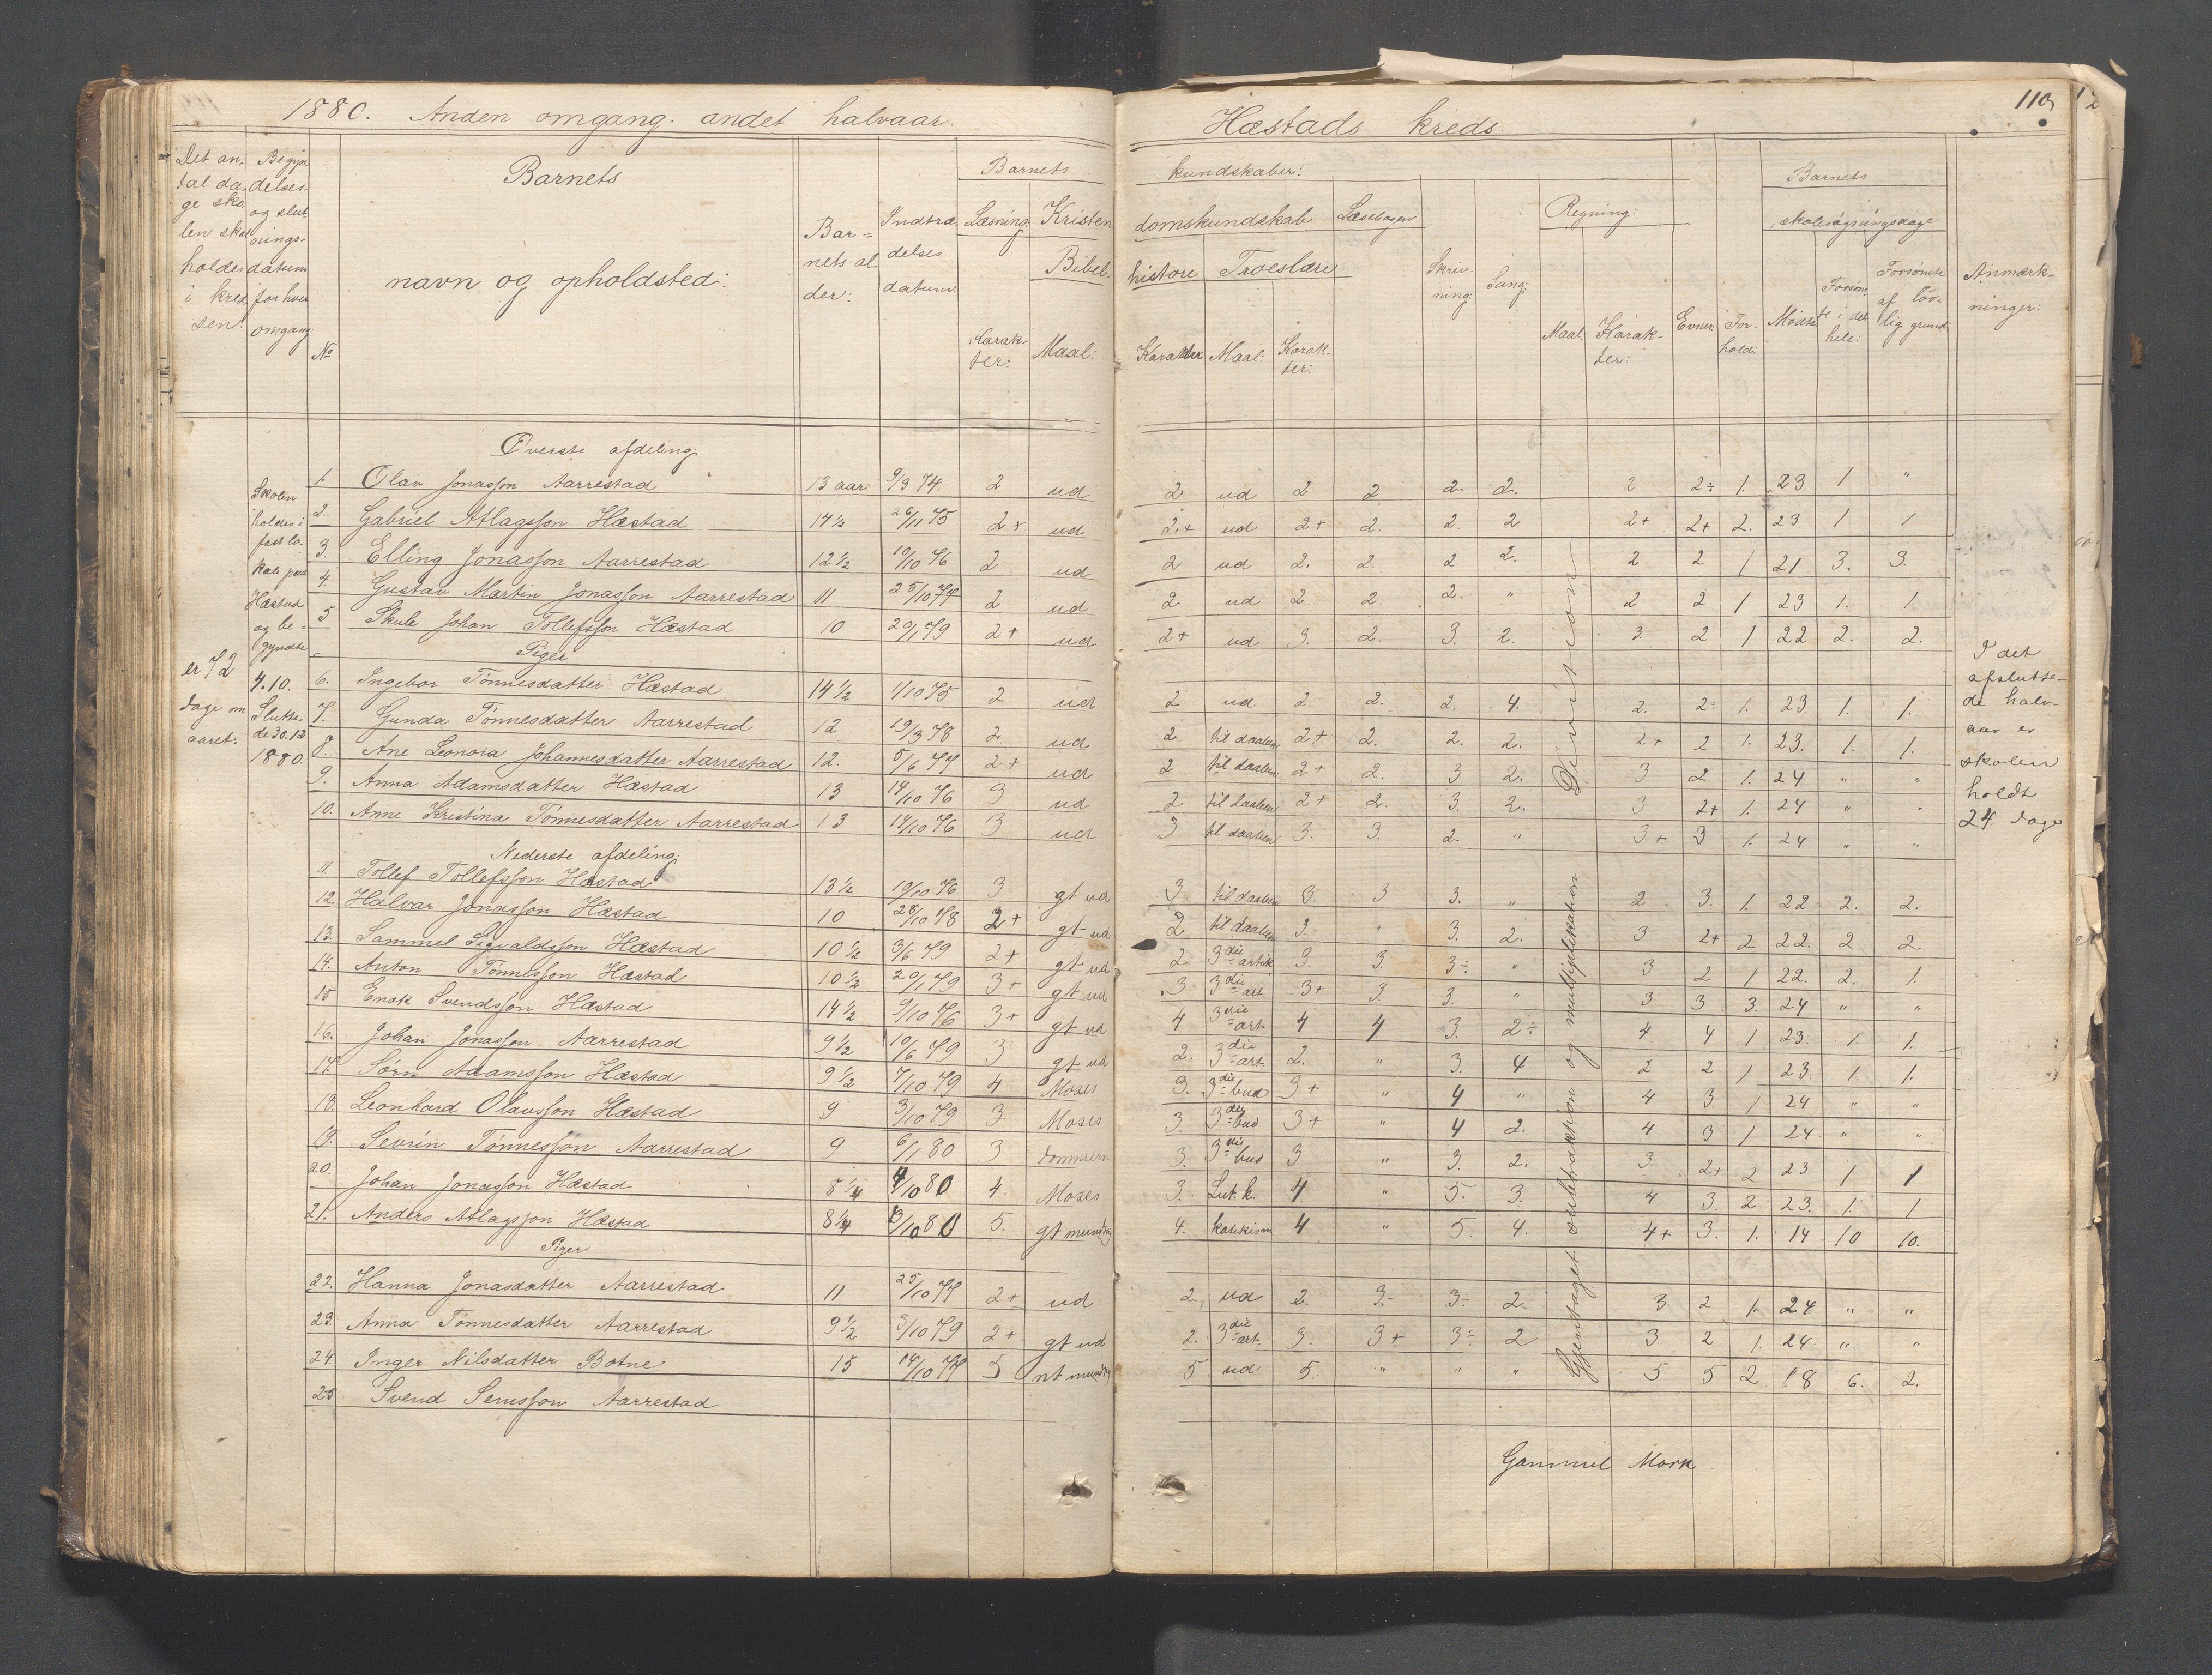 1880. Anden omgang. andet halvaar.
Hæstads kreds.
110
Det an-
tal da-
ge sko
len skal
holdes
i kred
sen:
Begyn
delses-
og slut
nings-
datum
for hver
omgang:
No
Barnets
navn og opholdsted:
Bar=
nets al
der:
Indtræ
delses
datum:
Barnets
Læsning:
Karak-
ter:
Kristen
Bibel-
Maal:
kundskaber:
domskundskab
histore
Karakter
Troeslære
Maal:
Karak-
ter:
Læsebogen
Skriv-
ning:
Sang:
Regning:
Maal:
Karak-
ter:
Evner
For-
hold:
Barnets
skolesøgningsdage
Mødte
Forsømt
te i det
hele:
Forsømte
af lov-
lig grund:
Anmærk-
ninger:
er 72
dage om
aaret.
Skolen
holdes i
fast lo-
kale paa
Hæstad
og be-
gyndte
4.10.
Slutte-
de 30.12
1880.
Øverste afdeling
1. Olav Jonasson Aarrestad 13 aar 9/3 74. 2 ud 2 ud 2 2 2. 2. 2 2÷ 1. 23 1 "
2 Gabriel Atlagsson Hæstad 14½ 26/11 75 2+ ud 2.+ ud 2+ 2. 2. 2 2+ 2+ 2. 23 1 1
3. Elling Jonasson Aarrestad 12½ 10/10 76 2 ud 2 ud 2. 2. 2 2. 2 2 1 21 3. 3.
4. Gustav Martin Jonasson Aarrestad 11 25/10 77 2 ud 2 ud 2. 2. 2. " 2 2 1 23 1. 1.
5 Skule Johan Tollefsson Hæstad 10 20/1 79 2+ ud 2+ ud 3. 2. 3. 2. 3 2 1 22 2. 2.
Piger
6. Ingebor Tønnesdatter Hæstad 14½ 1/10 75 2 ud 2 ud 2. 2. 2. 4. 2. 2÷ 1. 23. 1. 1.
7. Gunda Tønnesdatter Aarrestad 12 19/3 78 2 ud 2 til daaben 2+ 2. 2. 2. 2+ 2 1. 23. 1. 1.
8. Ane Leonora Johannesdatter Aarrestad 12. 5/6 77 2+ ud 2 til daaben 2+ 2. 3 2. 3 2 1. 24 " "
9. Anna Adamsdatter Hæstad 13 14/10 76 3 ud 2 til daaben 2+ 2. 3. 2. 3 2+ 1. 24 " "
10. Anne Kristina Tønnesdatter Aarrestad 13 14/10 76 3 ud 3 til daaben 3. 3. 2. " 3+ 3 1. 24 " "
Nederste afdeling
11. Tollef Tollefsson Hæstad 13½ 19/10 76 3 gt ud 3. til daaben 3. 3 3. " 2 3. 1. 22 2. 2.
12. Halvar Jonasson Hæstad 10 28/10 78 2+ gt ud 2 til daaben 3. " 3. 2. 3 2+ 2 22. 2 2
13. Sammel Sigvaldsson Hæstad 10½ 3/6 79 2+ gt ud 2 3die artik 3 3. 3÷ " 3 2 1 22. 2. 1.
14. Anton Tønnesson Hæstad 10½ 20/1 79 3+ gt ud 3 3die art 3+ 3. 3. " 3 3 3. 24 " "
15 Enok Svendsson Hæstad 14½ 9/10 76 3+ gt ud 4 3die art 4 4 3. 2÷ 4 4 1 23. 1. 1.
16. Johan Jonasson Aarrestad 9½ 10/6 79 3 gt ud 2. 3die art 2. " 3. 4 2 2 1 23. 1. 1.
17. Sørn Adamsson Hæstad 9½ 7/10 79 4 Moses 3. 3die bud 3+ " 4 " 4 3. 1 24 " "
18. Leonhard Olausson Hæstad 9 3/10 79 3 Moses 3. 3die bud 3+ " 4 2. 4 3 1 24 " "
19. Sevrin Tønnesson Aarrestad 9 6/1 80 3 dommern 3. 3die bud 3 " 3. 2. 3 2+ 2 23 1. 1
20. Johan Jonasson Hæstad 8¼ 4/10 80 4. Moses 3. Lut. k. 4 " 5. 3. 4 3. 2 23. 1. 1
21. Anders Atlagsson Hæstad 8¼ 8/10 80 5. gt mundtlig 4. katekism 4 " 5 4. 4+ 3. 1. 14 10 10.
Piger
22. Hanna Jonasdatter Aarrestad 11 25/10 77 2+ ud 2. ud 2. 3- 3÷ 2. 3 2 1. 24 " "
23. Anna Tønnesdatter Aarrestad 9½ 3/10 79 2+ gt ud 2. 3die art. 3. 3+ 3÷ 2 3 2 1. 24 " "
24. Inger Nilsdatter Botne 15 14/10 77 5 nt mundtlig 5 ud 5. " " " 5 5 2 18 6. 2.
25 Svend Aarrestad
Division
Gjentaget subtraktion og multiplikation
I det
afslutte-
de halv-
aar er
skolen
holdt
24 dage
Gammel Mork